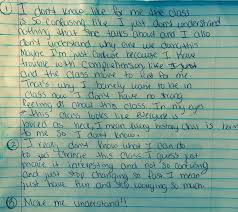 ① I don't know like for me the class
is so confusing like I just don't understand
nothing that she talks about and I also
don't understand why are we doing this
Maybe I'm just confuse because I have
trouble with comprehension like I said
and the class move to fast for me.
That's why I barely want to be in
class and I don't have no strong
feeling at about this class. In my eyes
this class looks like everyone is
bored as hell I mean every history class is
to me so I don't know.
② I really don't know what I can do
to you change this class I guess just
make it interesting and not so confusing
and just stop changing so fast I mean
just have fun and stop worrying so much.
③ Make me understand!!